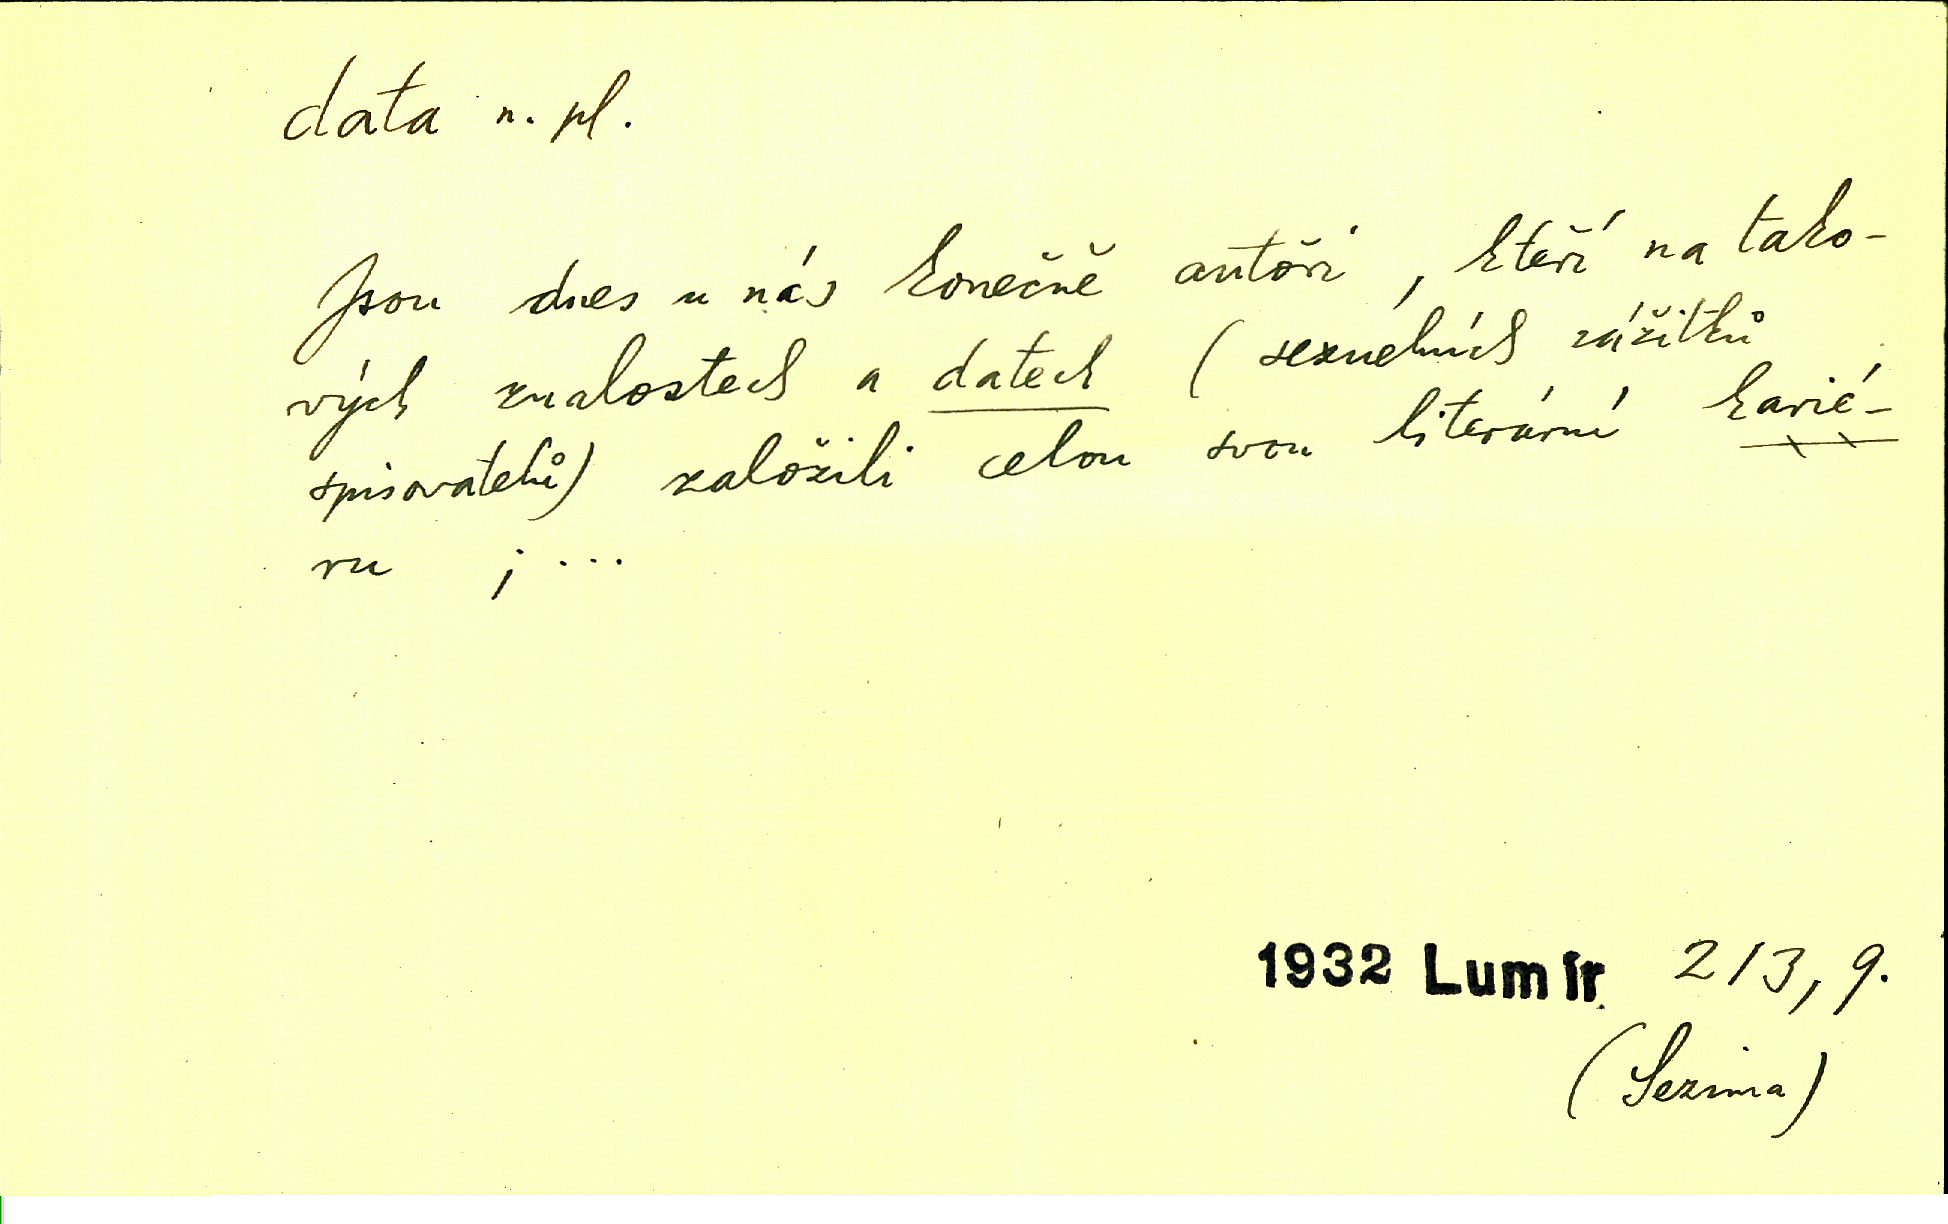 data n. pl.
Jsou dnes u nás konečně autoři, kteří na tako-
vých znalostech a datech (sexuelních zážitků
spisovatelů) založili celou svou literární karié-
ru ; ...
1932 Lumír 213, 9.
(Sezima)